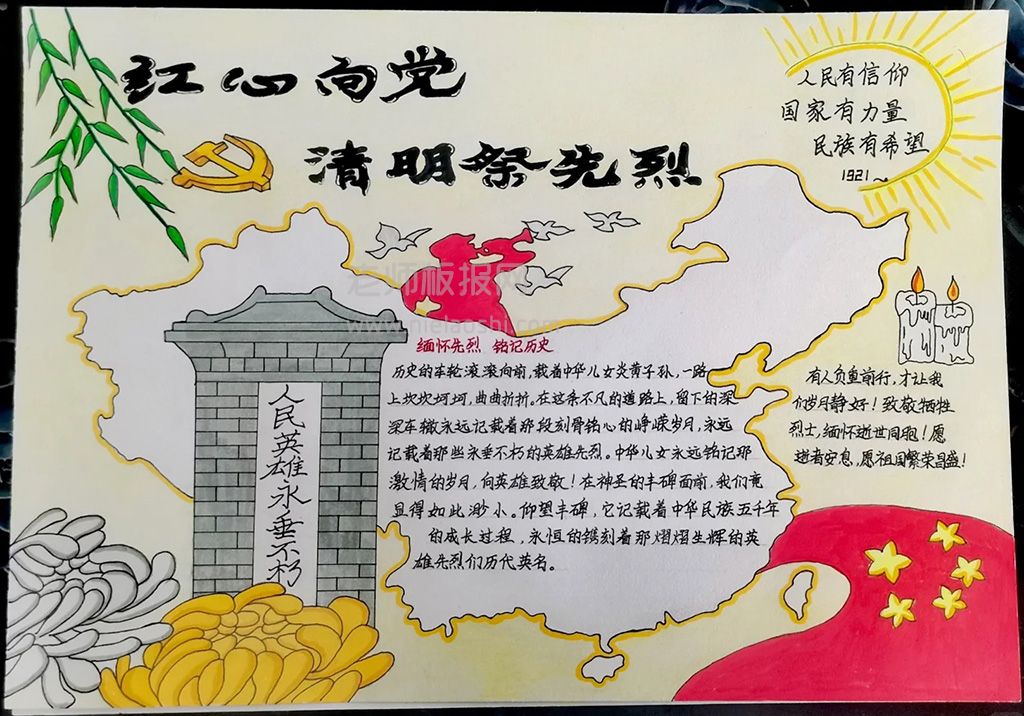 红心向党
清明祭先烈
人民有信仰
国家有力量
民族有希望
1921~
老师板报网
缅怀先烈 铭记历史
历史的车轮滚滚向前,载着中华儿女炎黄子孙,一路
上坎坎坷坷,曲曲折折。在这条不凡的道路上,留下的深
深车辙永远记载着那段刻骨铭心的峥嵘岁月,永远
记载着那些永垂不朽的英雄先烈。中华儿女永远铭记那
激情的岁月,向英雄致敬!在神圣的丰碑面前,我们竟
显得如此渺小。仰望丰碑,它记载着中华民族五千年
的成长过程,永恒的镌刻着那熠熠生辉的英
雄先烈们历代英名。
人民英雄永垂不朽
有人负重前行,才让我
们岁月静好!致敬牺牲
烈士,缅怀逝世同胞!愿
逝者安息,愿祖国繁荣昌盛!